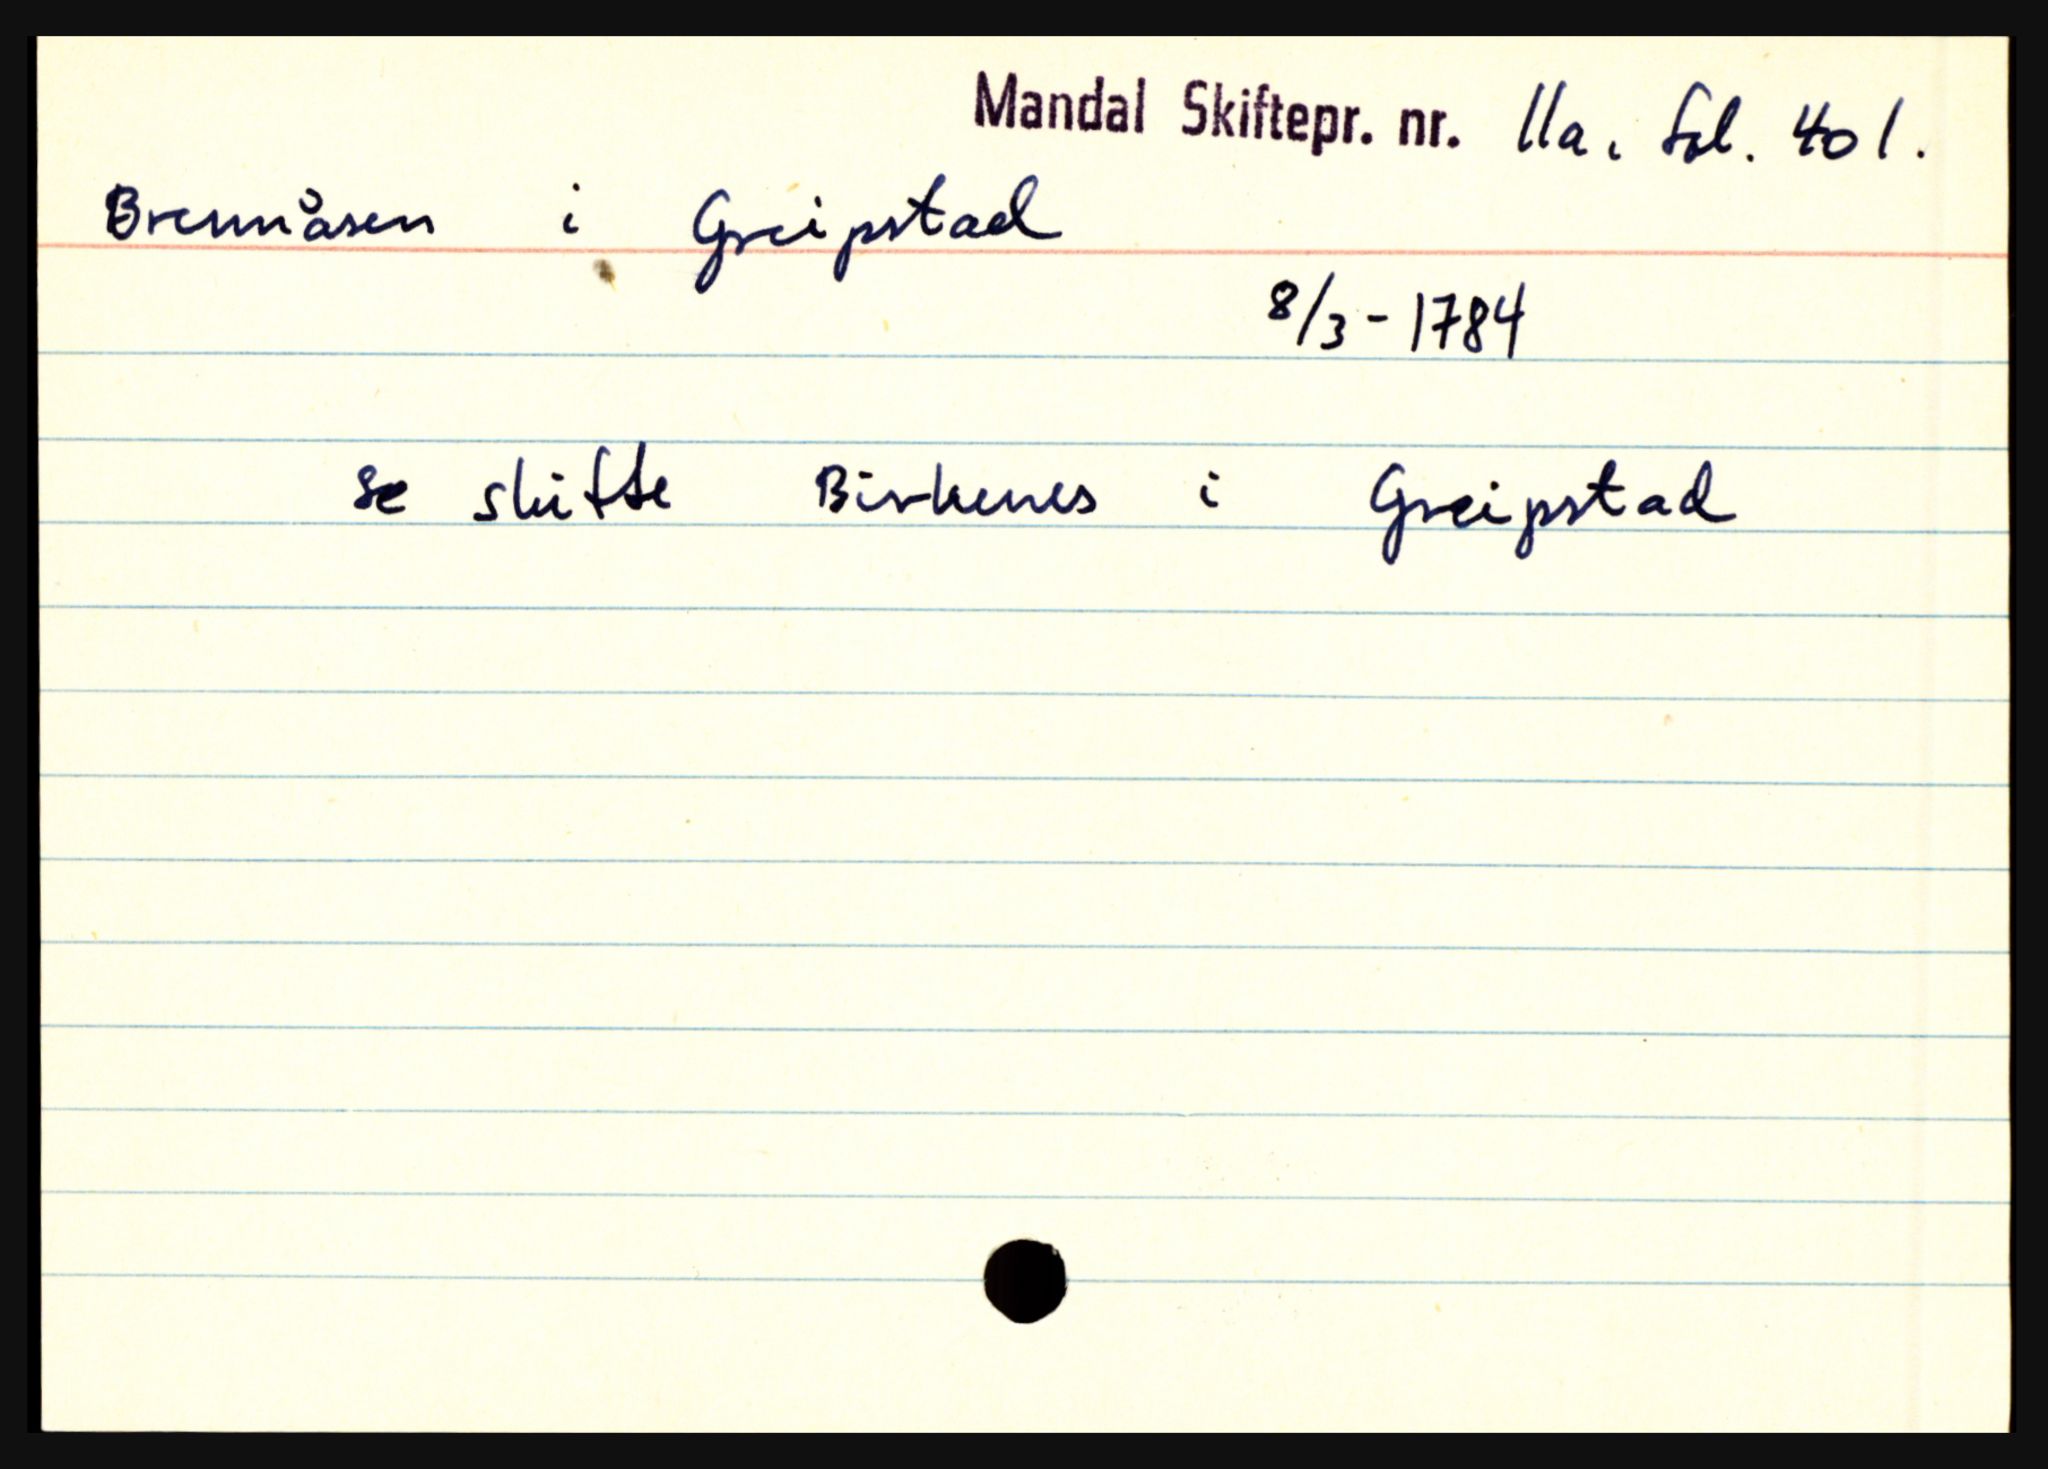 Mandal Skiftepr. nr. 11a. fol. 401.
Brennåsen i Greipstad
8/3-1784
se skifte Birkenes i Greipstad